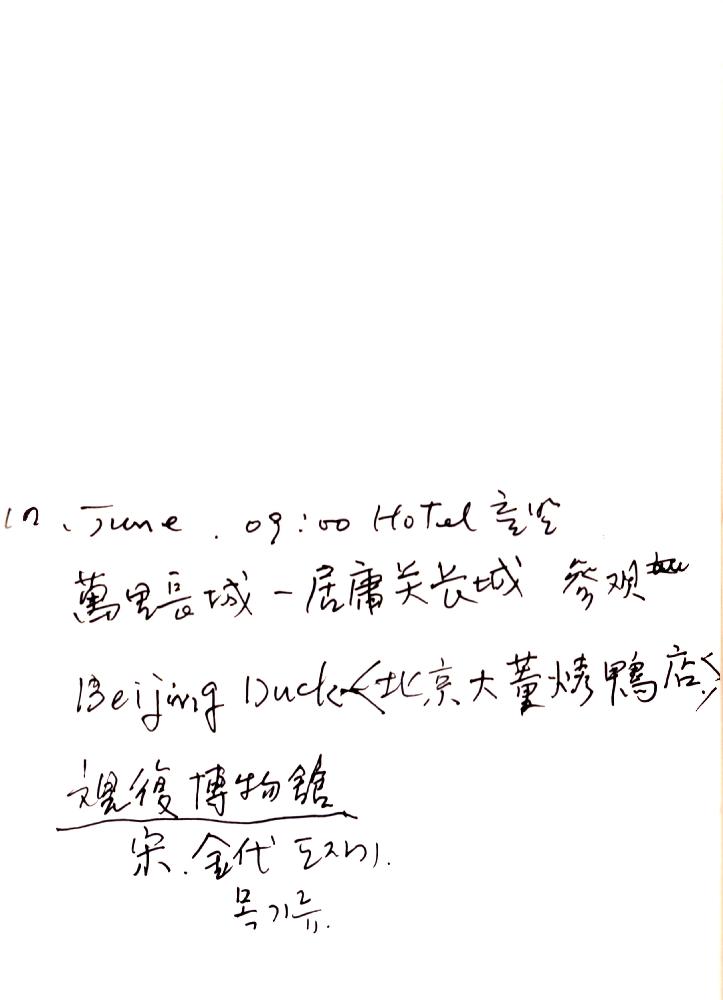 17. June. 09:00 Hotel 출발
萬里長城 - 居庸关长城 參观
Beijing Duck <北京大董烤鴨店>
觀復博物館
宋. 金代 도자기.
목기류.